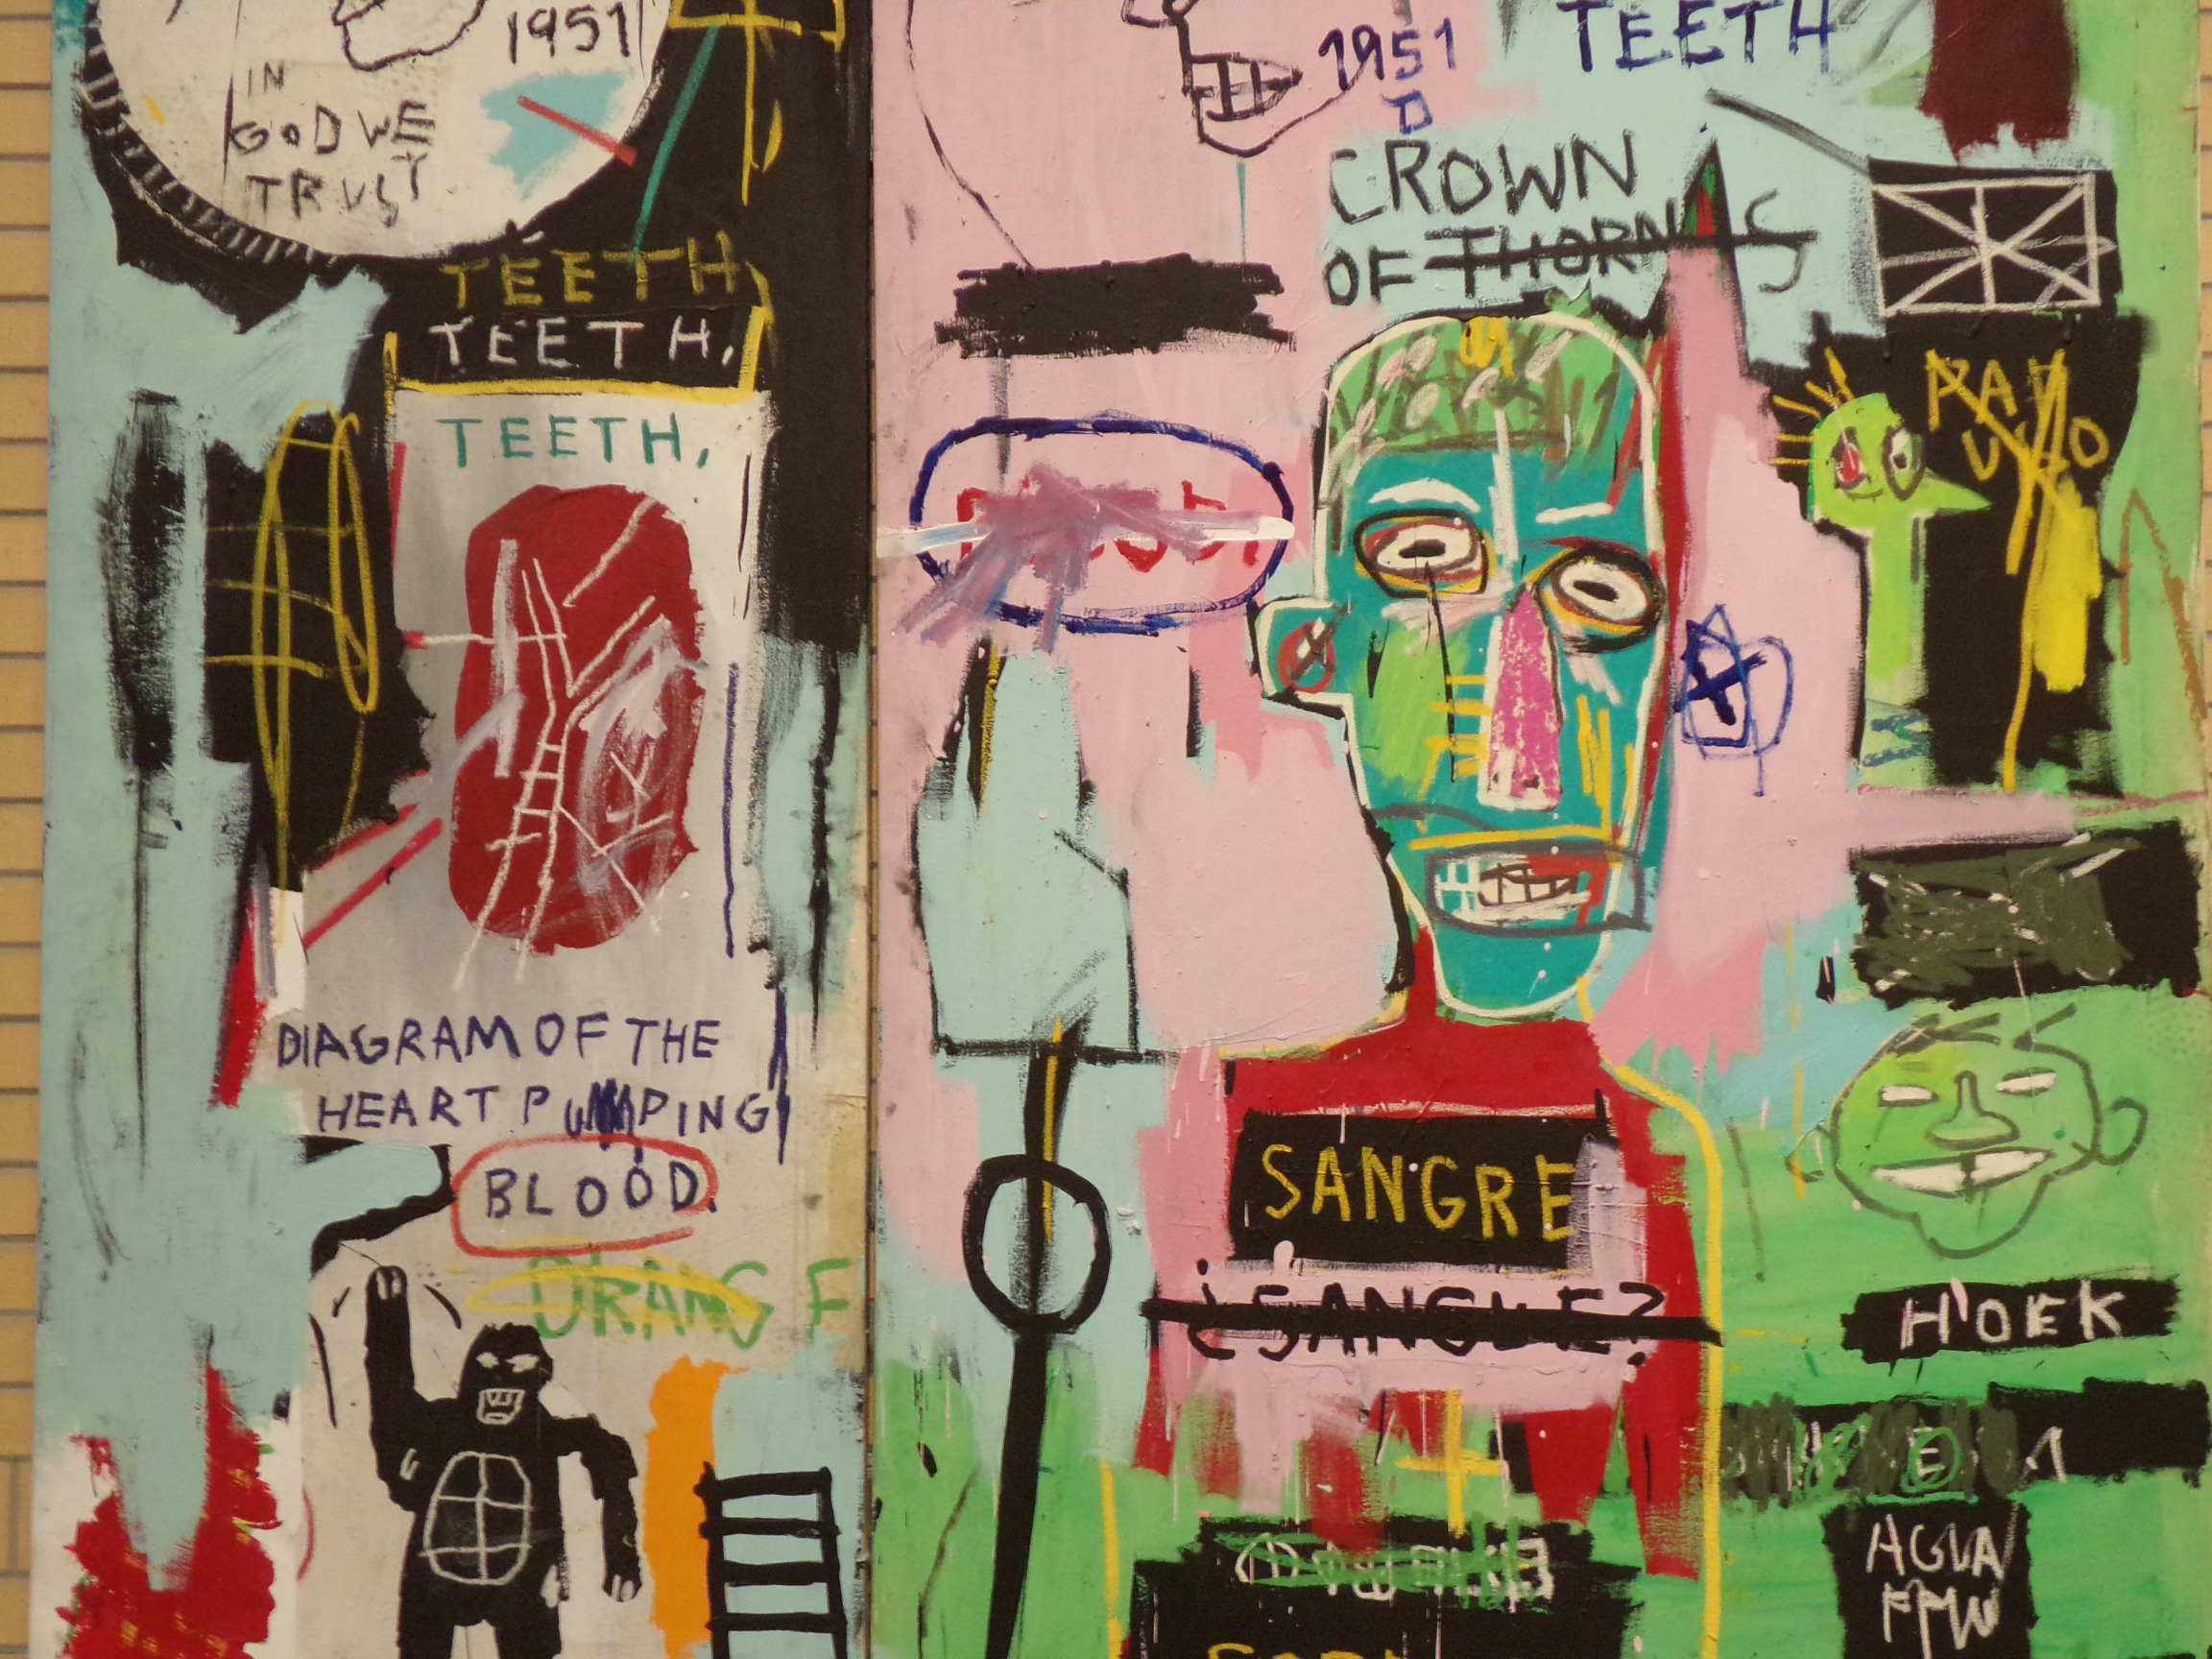 1951
IN
GOD WE
TRUST
TEETH,
TEETH,
TEETH,
DIAGRAM OF THE
HEART PUMPING
BLOOD.
ORANGE
1951
D
TEETH
CROWN
OF THORNS
SANGRE
¿SANGUE?
H'OEK